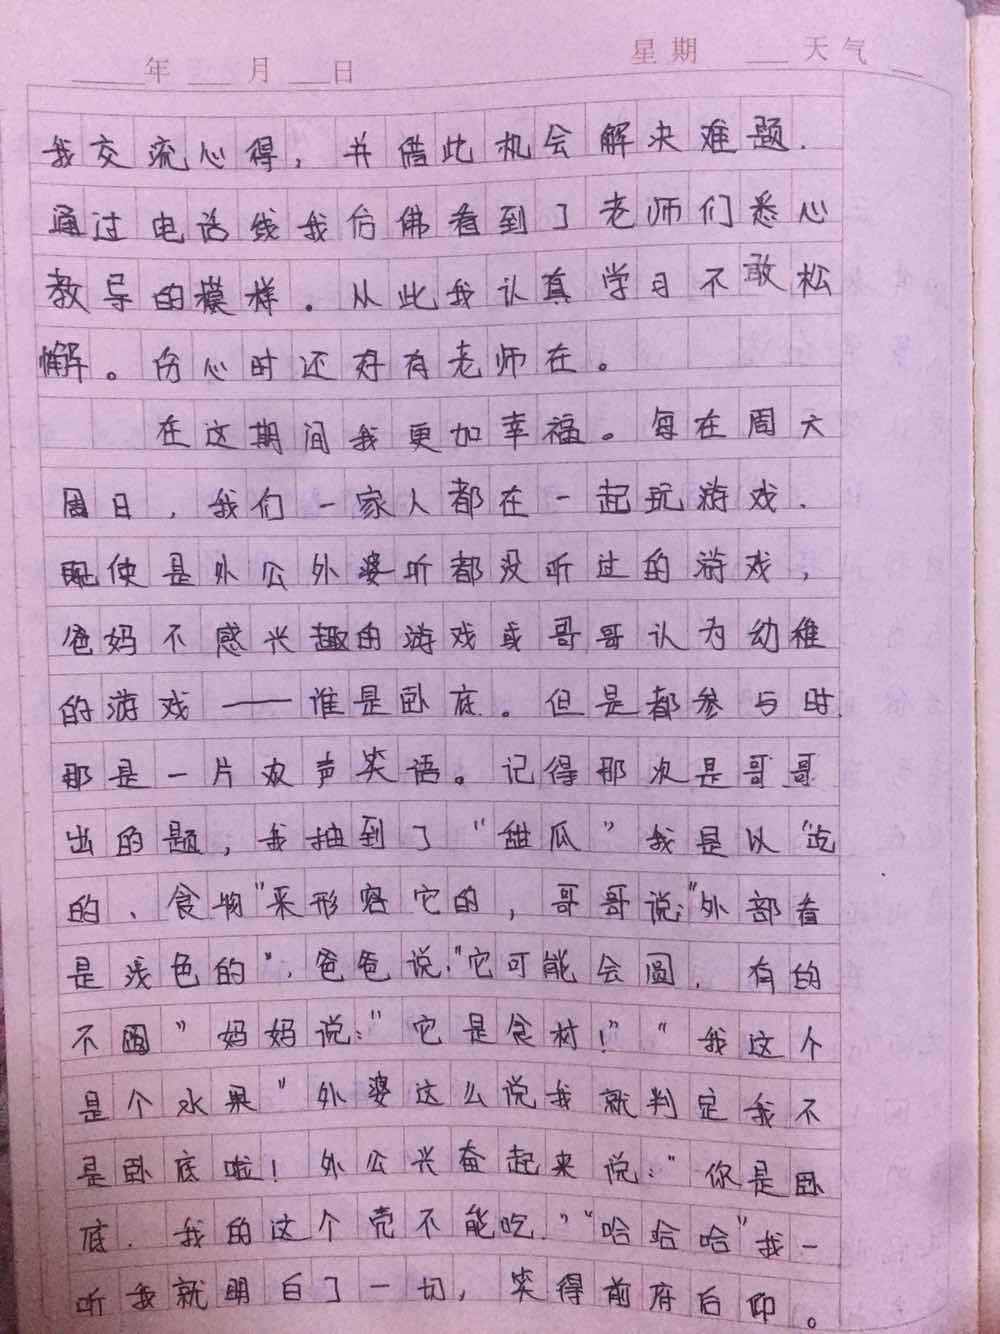 年 月 日 星期 天气
我交流心得，并借此机会解决难题.
通过电话线我仿佛看到了老师们悉心
教导的模样。从此我认真学习不敢松
懈。伤心时还好有老师在。
在这期间我更加幸福。每在周六
周日，我们一家人都在一起玩游戏.
既使是外公外婆听都没听过的游戏，
爸妈不感兴趣的游戏或哥哥认为幼稚
的游戏——谁是卧底。但是都参与时
那是一片欢声笑语。记得那次是哥哥
出的题，我抽到了“甜瓜”我是以“吃
的、食物”来形容它的，哥哥说：“外部看
是浅色的”.爸爸说：“它可能会圆.有的
不圆”妈妈说：“它是食材！”“我这个
是个水果”外婆这么说我就判定我不
是卧底啦！外公兴奋起来说：“你是卧
底.我的这个壳不能吃.”“哈哈哈”我一
听我就明白了一切，笑得前府后仰。